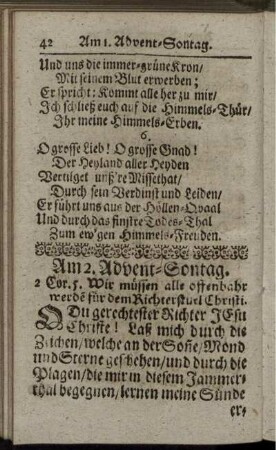 42 Am 1. Advent-Sontag.
Und uns die immer-grüne Kron/
Mit seinem Blut erwerben;
Er spricht: Kommt alle her zu mir/
Jch schließ euch auf die Himmels-Thür/
Jhr meine Himmels-Erben.
6.
O grosse Lieb! O grosse Gnad!
Der Heyland aller Heyden
Vertilget unß're Missethat/
Durch sein Verdinst und Leiden/
Er führt uns aus der Höllen-Qvaal
Und durch das finstre Todes-Thal
Zum ew'gen Himmels-Freuden.
Am 2. Advent-Sontag.
2 Cor. 5. Wir müssen alle offenbahr
werdē für dem Richterstuel Christi.
O Du gerechtester Richter JEsu
Christe! Laß mich durch die
Zeichen/ welche an der Soñe/ Mond
und Sterne geschehen/ und durch die
Plagen/ die mir in diesem Jammer-
thal begegnen/ lernen meine Sünde
er-